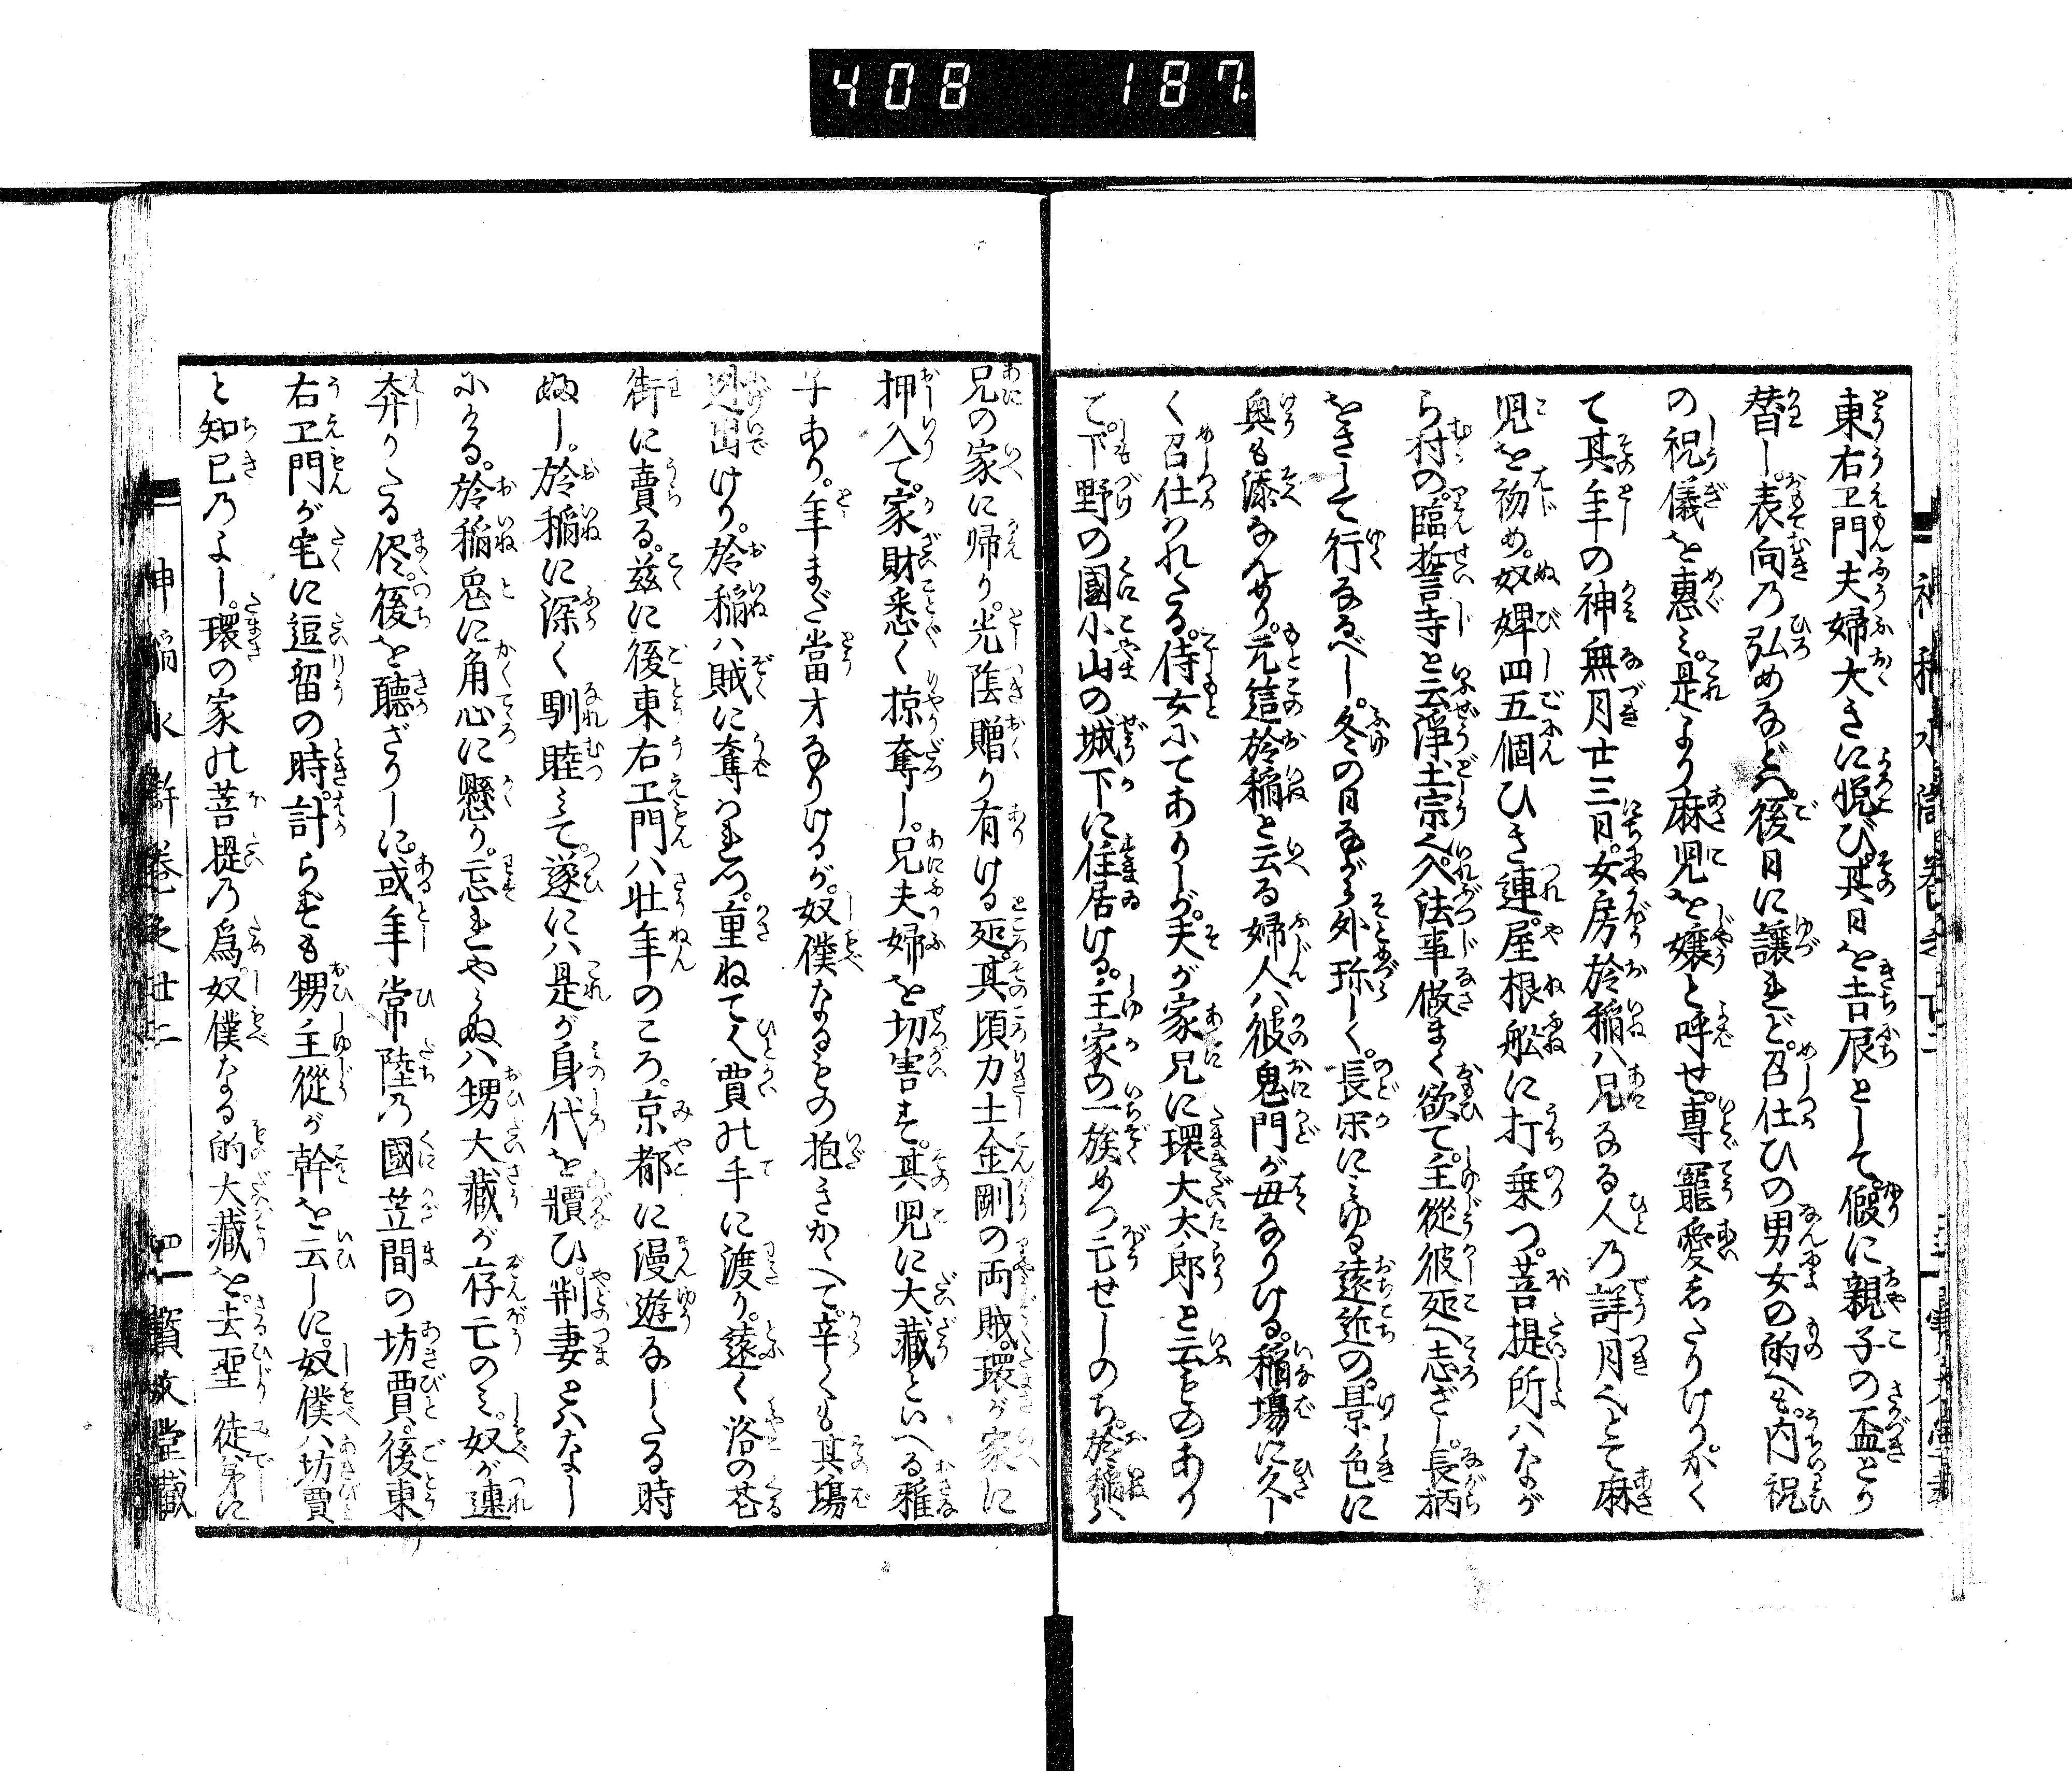 408 187.
東右ヱ門夫婦大きに悦び。其日を吉辰として。假に親子の盃とり
替し。表向乃弘めなどハ。後日に譲れど。召仕ひの男女の的へも。内祝
の祝儀を惠ミ。是より麻児を嬢と呼せ。専寵愛したりけりかく
て其年の神無月廿三日。女房於稲ハ兄なる人乃詳月にとて麻
児を初め。奴婢四五個ひき連。屋根舩に打乗つ。菩提所ハなが
ら村の。臨誓寺と云淨土宗にて。法事做まく欲て。主從彼処へ志ざし。長柄
をさして行なるべし。冬の日ながら外珎しく。長閑にミゆる遠近の。景色に
奥も添なんめり。元這於稲と云る婦人ハ。彼鬼門が毋なりける。稲塲に久し
く召仕ハれたる。侍女にてありしが。夫が家兄に環大太郎と云ものあり
て。下野の國小山の城下に住居ける。主家の一族めつ亡せしのち。於稲ハ
兄の家に帰り。光陰贈り有ける処。其頃力士金剛の両賊。環が家に
押入て。家財悉く掠奪し。兄夫婦を切害す。其児に大藏といへる雅
子あり。年まだ當才なりけるが。奴僕なるもの抱きかゝへて。辛くも其塲
迯出けり。於稲ハ賊に奪ハれつ。重ねて人賈の手に渡り。遠く洛の花
街に賣る。茲に後東右ヱ門ハ壮年のころ。京都に漫遊なしたる時
ぬし。於稲に深く馴睦ミて。遂にハ是が身代を贖ひ。判妻とハなし
にける。於稲兎に角心に懸り。忘れやらぬハ甥大藏が存亡のミ。奴が連
奔りたる侭。後を聽ざりしに。或年常陸乃國笠間の坊賈。後東
右ヱ門が宅に逗留の時。計らずも甥主從が幹を云しに。奴僕ハ坊賈
と知己乃よし。環の家の菩提乃爲。奴僕なる的大藏を。去聖徒弟に
神稲水滸巻之廿二 四 寳文堂藏